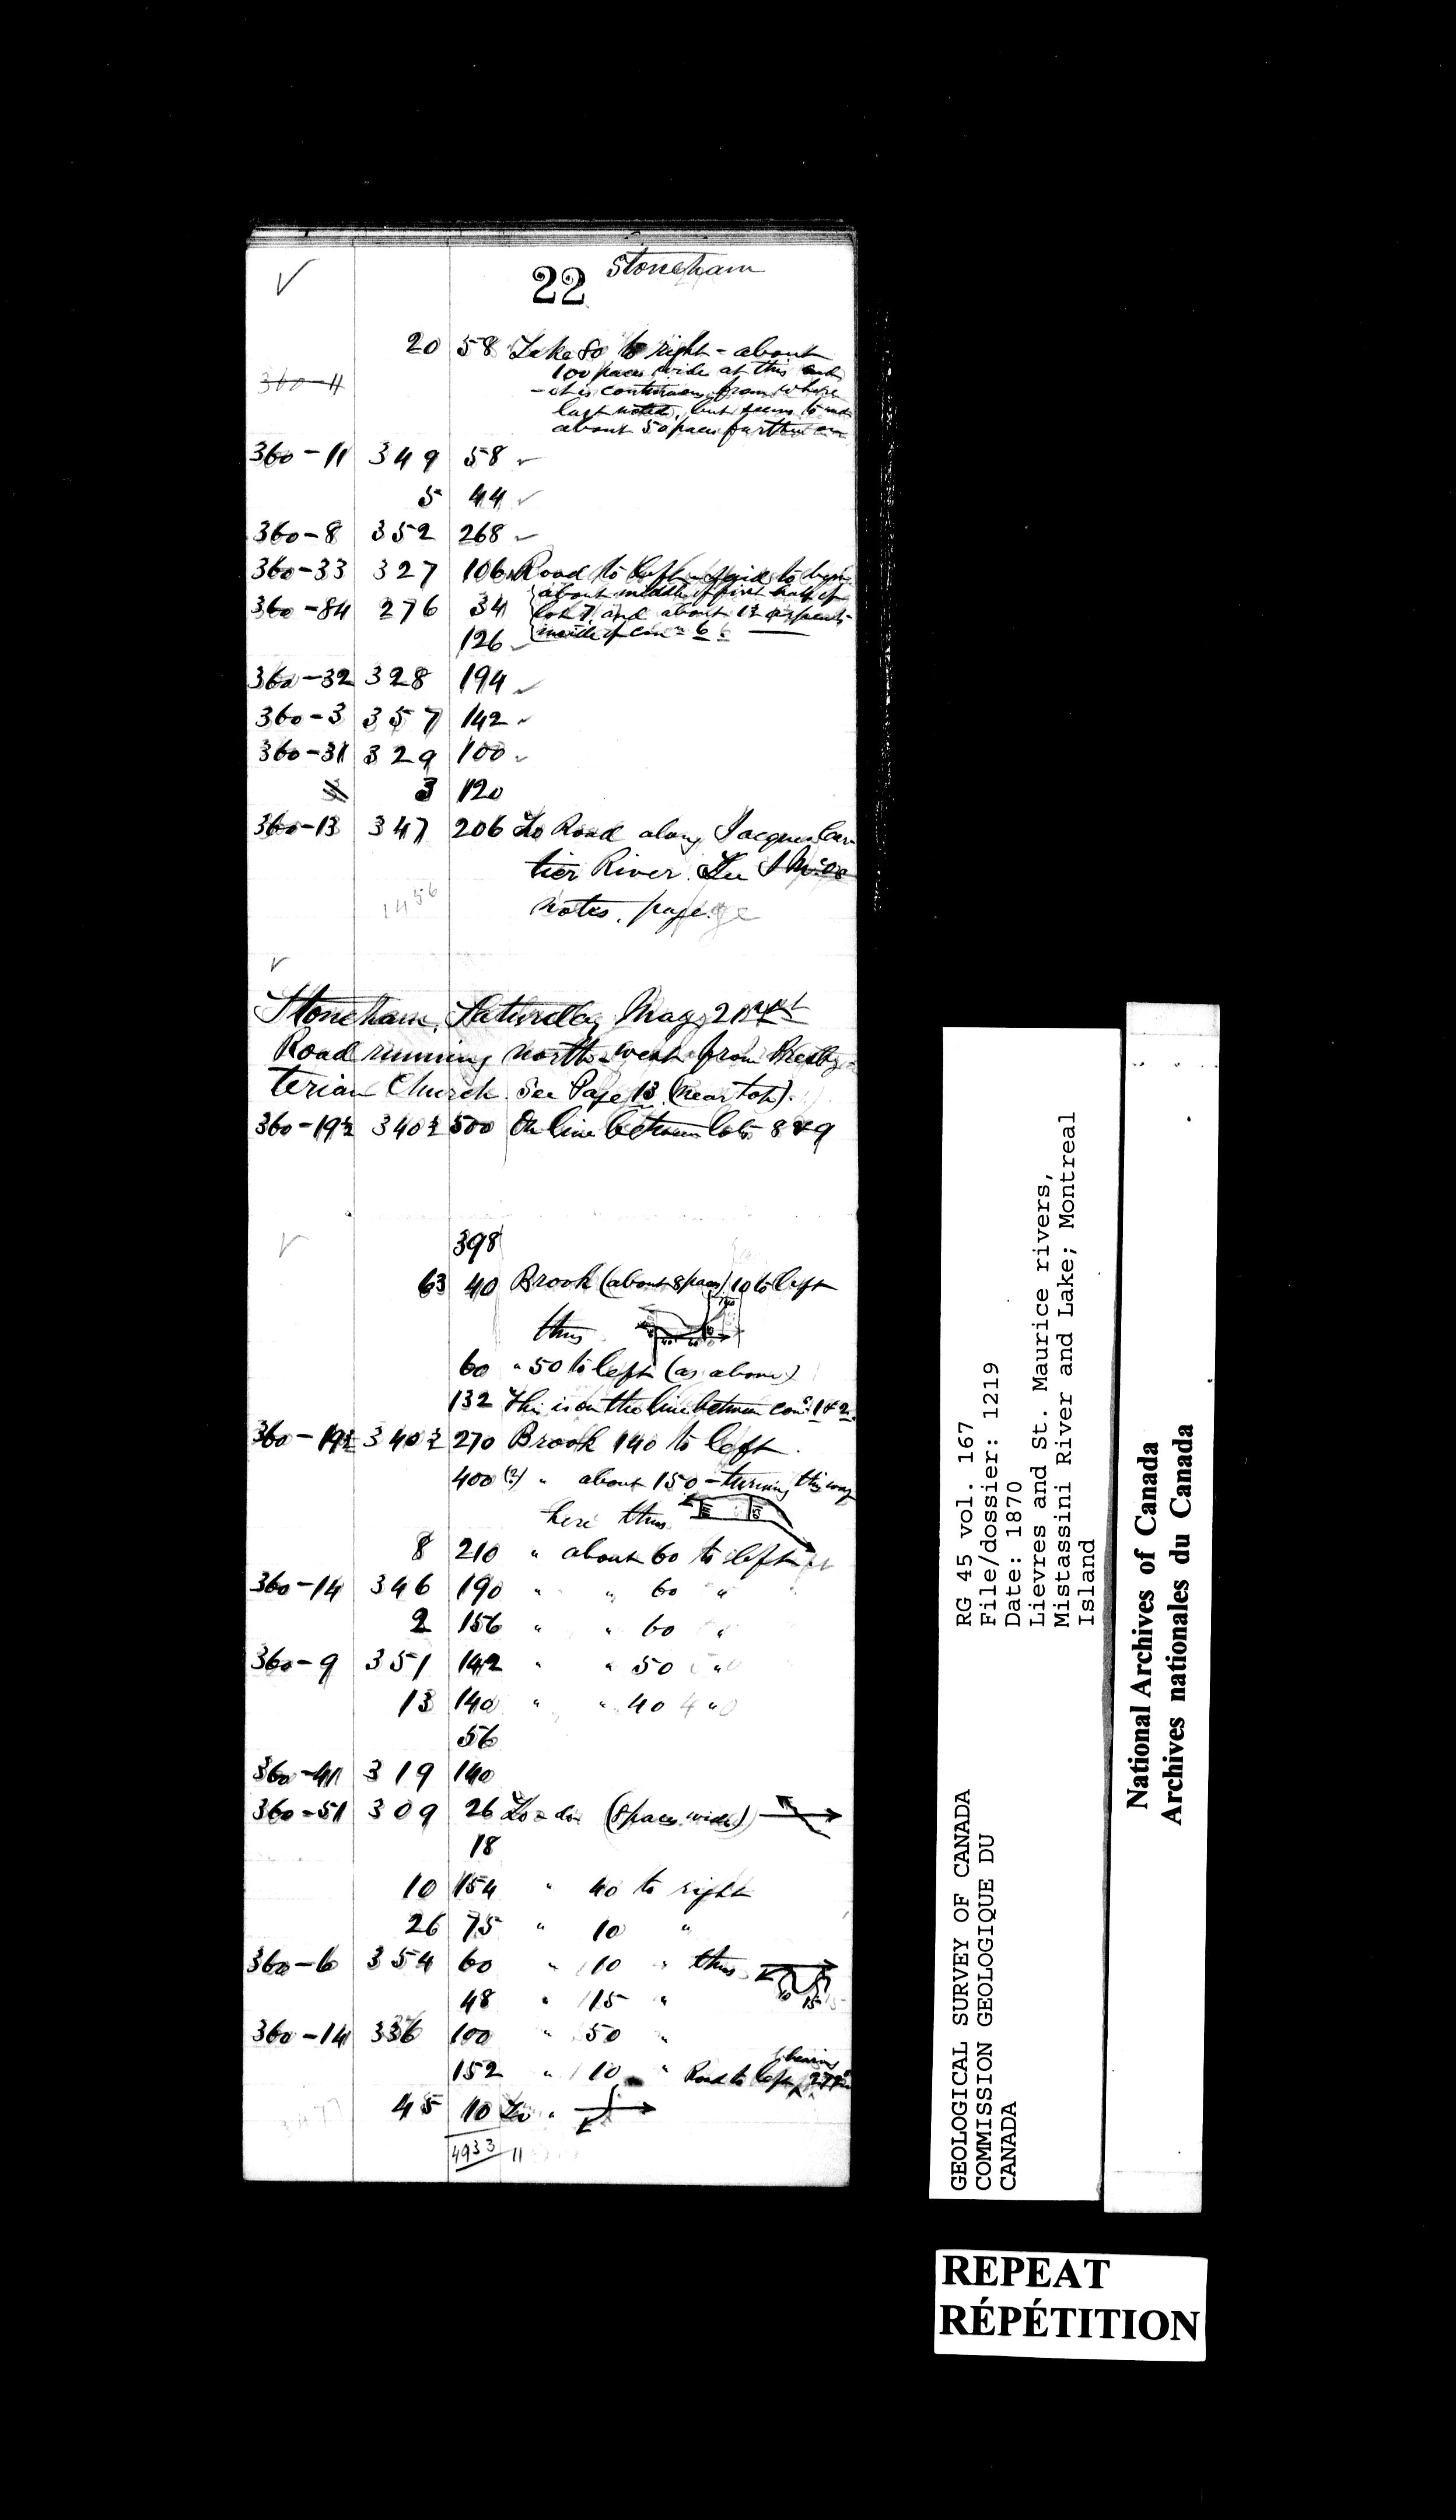 22 Stoneham
20 58 Lake 80 to right - about
100 paces wide at this end
360-11 - it is continuous from where
last noted, but seems to end
about 50 paces further on
360-11 349 58
5 44
360-8 352 268
360-33 327 106 Road to left - said to begin
about middle of first half of
360-84 276 34 lot 7 and about 12 arpents
126 inside of con 6
360-32 328 194
360-3 357 142
360-31 329 100
3 120
360-13 347 206 To Road along Jacques Car-
tier River. See
1456 notes, page
Stoneham, Saturday May 21st
Road running north-west from Presby-
terian Church. See Page 13 (near top).
360-19½ 340½ 500 On line between lots 8 & 9
398
63 40 Brook (about 8 paces) 10 to left
thus
60 " 50 to left (as above)
132 This is on the line between cons. 1 & 2.
360-19½ 340½ 270 Brook 140 to left.
400 (?) " about 150 - turning this way
here thus
8 210 " about 60 to left
360-14 346 190 " " 60 "
2 156 " " 60 "
360-9 351 142 " " 50 "
13 140 " " 40 "
56
360-41 319 140
360-51 309 26 To - do (8 paces wide)
18
10 154 " 40 to right
26 75 " 10 "
360-6 354 60 " 10 " thus
10 15
48 " 15 "
360-14 336 100 " 50 "
bearing
152 " 10 " Road to left
45 10 To "
4933 11
RG 45 vol. 167
File/dossier: 1219
Date: 1870
Lievres and St. Maurice rivers,
Mistassini River and Lake; Montreal
Island
GEOLOGICAL SURVEY OF CANADA
COMMISSION GEOLOGIQUE DU
CANADA
National Archives of Canada
Archives nationales du Canada
REPEAT
RÉPÉTITION